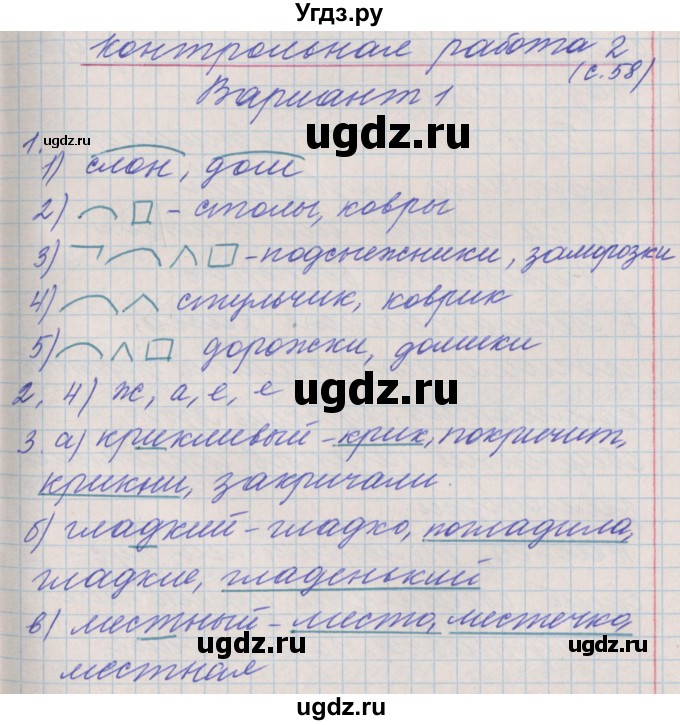 Угдз.ру
Контрольная работа 2
(с. 58)
Вариант 1
ugdz.ru
ugdz.ru
1.
1) слон, дом
2) - столы, ковры
3) - подснежники, заморозки
ugdz.ru
4) стульчик, коврик
5) дорожки, домики
ugdz.ru
2. 4) ж, а, е, е
3. а) крикливый - крик, покричит,
ugdz.ru
крикни, закричали.
б) гладкий - гладко, погладила,
ugdz.ru
гладкие, гладенький
в) местный - место, местечко
ugdz.ru
ugdz.ru
местная
ugdz.ru